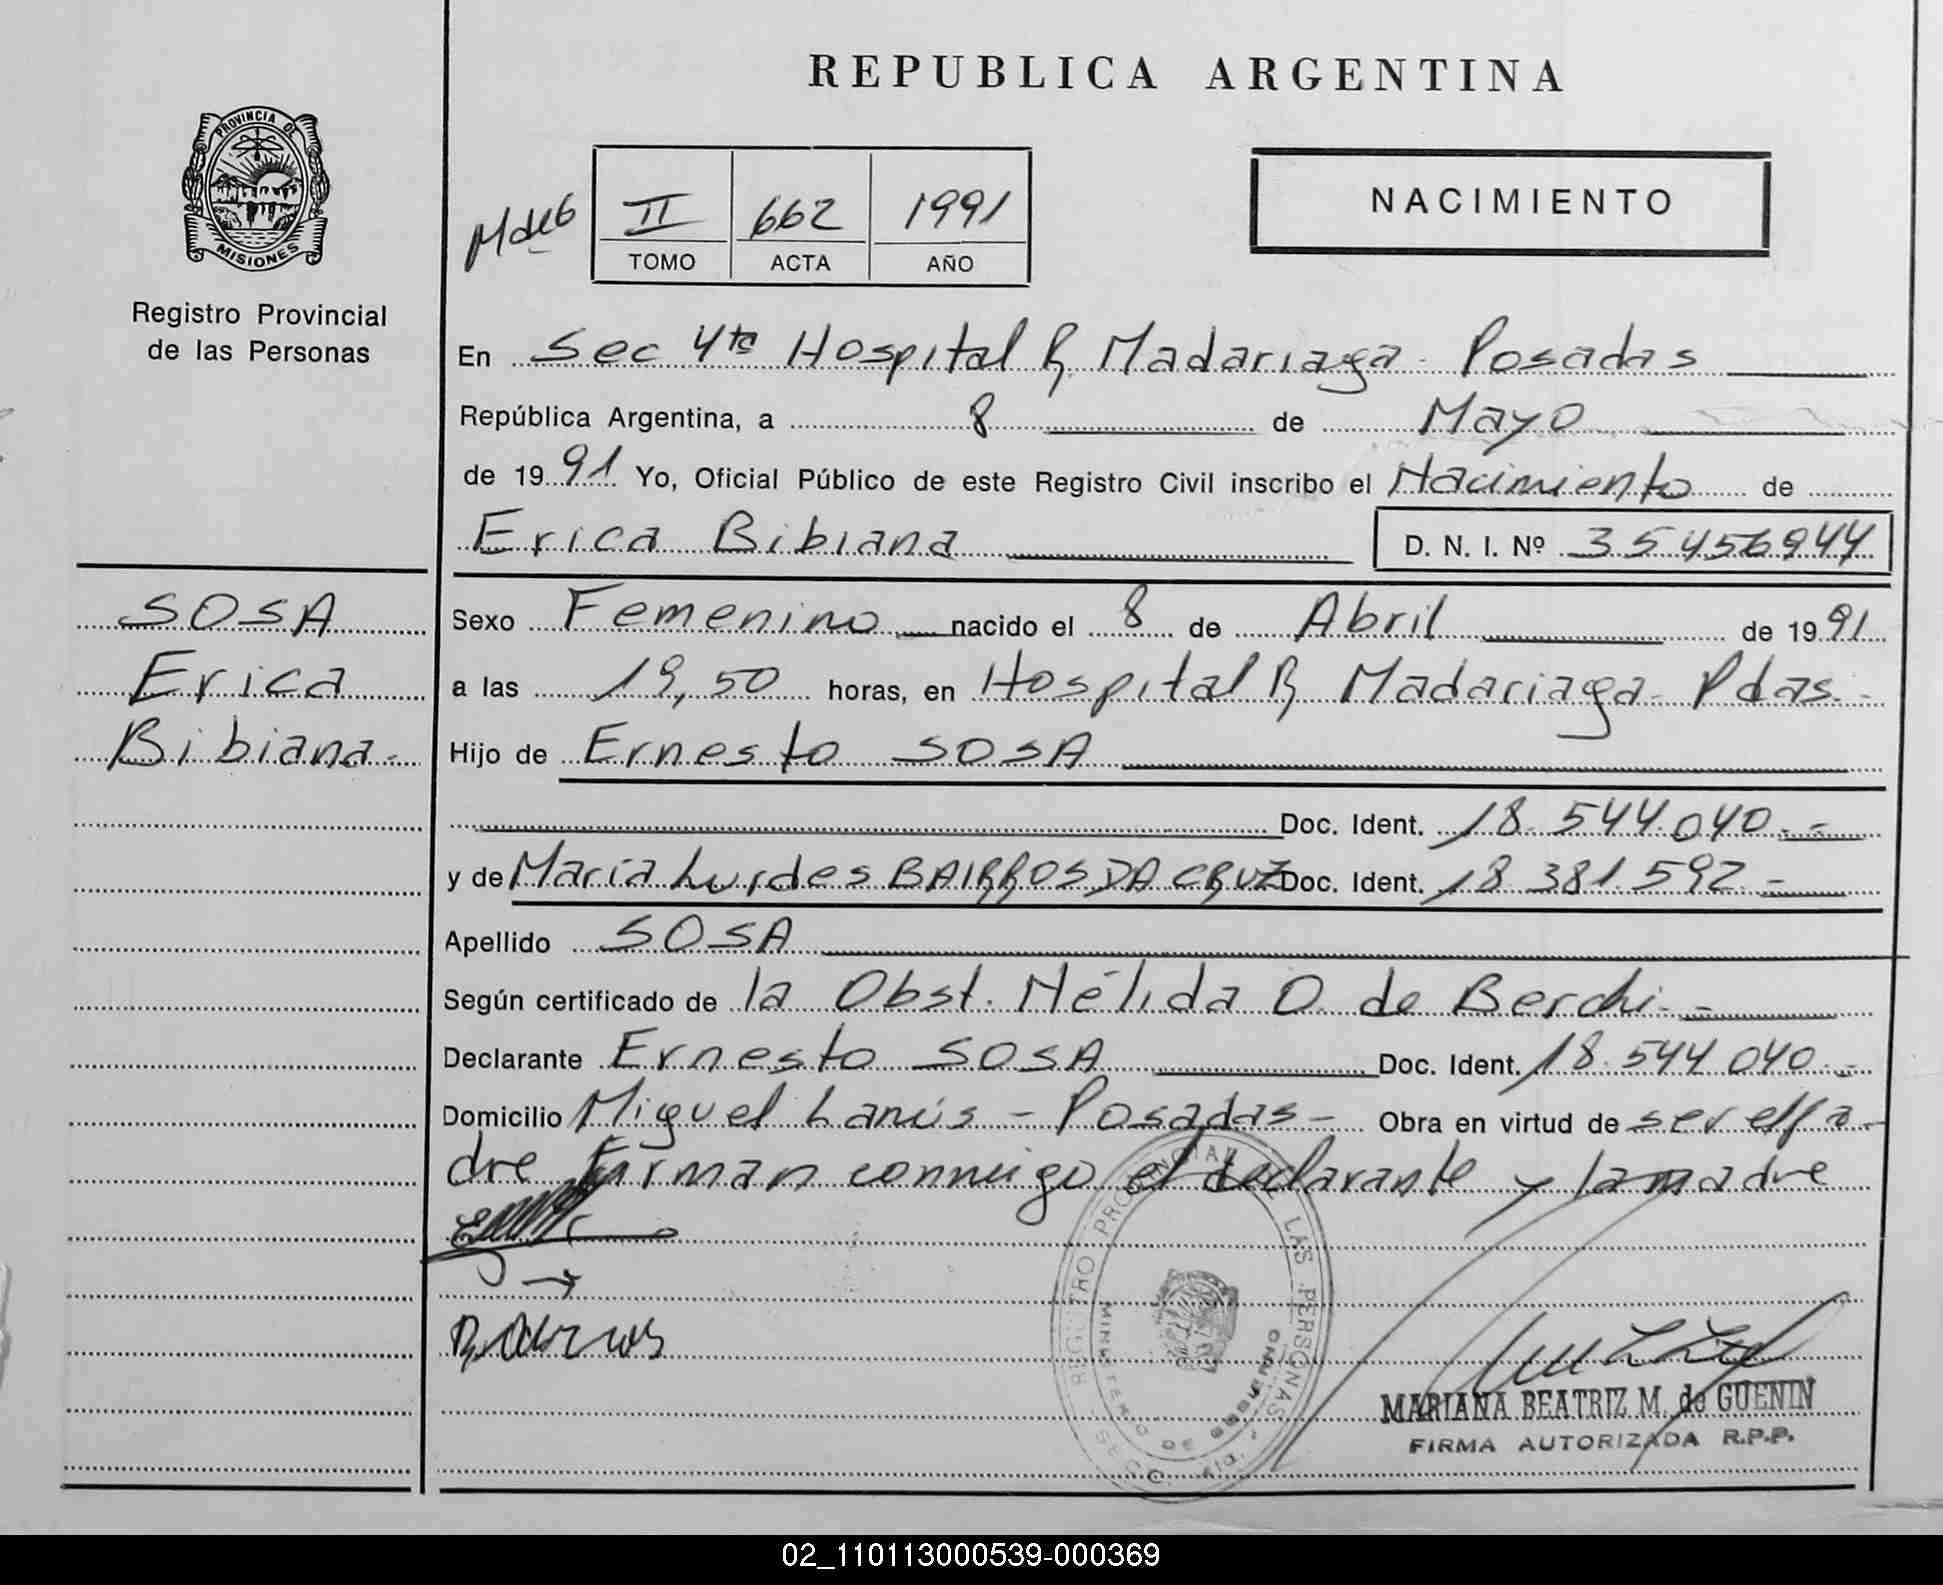 REPUBLICA ARGENTINA
PROVINCIA DE
MISIONES
Registro Provincial
de las Personas
II 662 1991
TOMO ACTA AÑO
NACIMIENTO
En Sec 4ta Hospital R. Madariaga - Posadas
República Argentina, a 8 de Mayo
de 1991 Yo, Oficial Público de este Registro Civil inscribo el Nacimiento de
Erica Bibiana D. N. I. Nº 35456944
SOSA
Erica
Bibiana-
Sexo Femenino nacido el 8 de Abril de 1991
a las 19,50 horas, en Hospital R Madariaga - Pdas.-
Hijo de Ernesto SOSA
Doc. Ident. 18.544.040.-
y de María Lurdes BAIRROS DA CRUZ Doc. Ident. 18.381.592.-
Apellido SOSA
Según certificado de la Obst. Nélida O. de Berchi.-
Declarante Ernesto SOSA Doc. Ident. 18.544.040.-
Domicilio Miguel Lanús - Posadas - Obra en virtud de ser el pa-
dre Firman conmigo el declarante y la madre
REGISTRO PROVINCIAL DE LAS PERSONAS
MINISTERIO DE GOBIERNO
MARIANA BEATRIZ M. de GUENIN
FIRMA AUTORIZADA R.P.P.
02_110113000539-000369